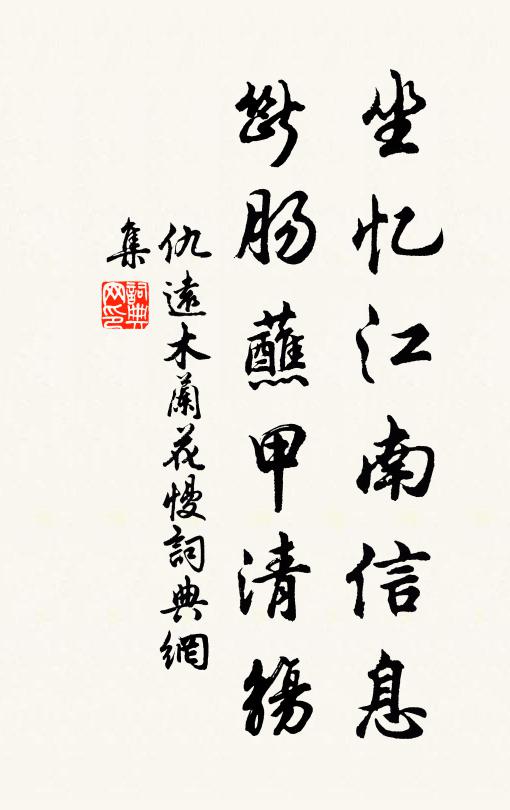 坐忆江南信息
断肠蘸甲清觞
仇遠木蘭花慢詞典網
集
詞典网印